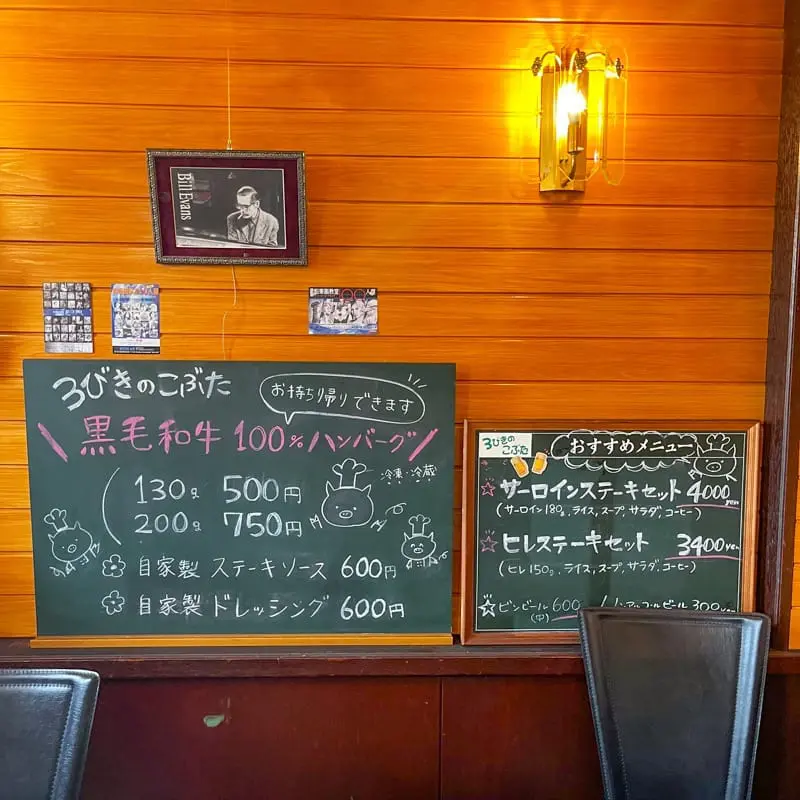 Bill Evans
100人展
3びきのこぶた
お持ち帰りできます
黒毛和牛 100%ハンバーグ
冷凍・冷蔵
130g 500円
200g 750円
自家製 ステーキソース 600円
自家製 ドレッシング 600円
3びきの
こぶた
おすすめメニュー
☆サーロインステーキセット 4000yen
(サーロイン180g、ライス、スープ、サラダ、コーヒー)
☆ヒレステーキセット 3400yen
(ヒレ150g、ライス、スープ、サラダ、コーヒー)
☆ビンビール600
(中)
ノンアルコールビール300yen